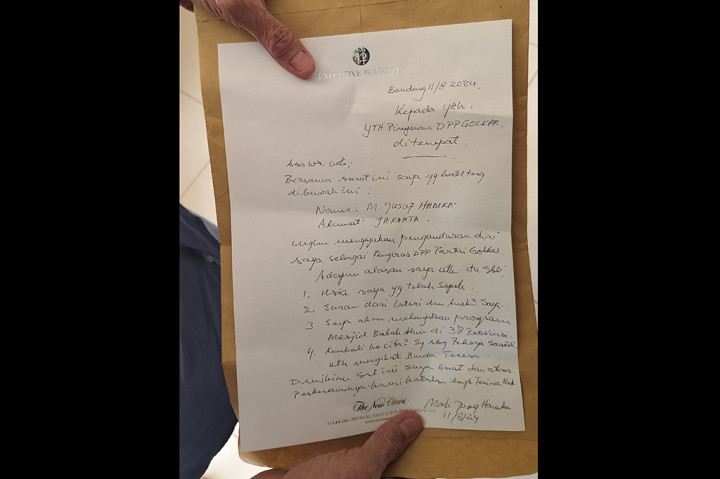 EXECUTIVE
Bandung 11/8 2024.
Kepada yth.
YTH Pengurus DPP GOLKAR.
ditempat.
Bersama surat ini saya yg bertd tang
dibawah ini :
Nama : M. Jusuf HAMKA
Alamat : JAKARTA.
ingin mengajukan pengunduran diri
saya sebagai Pengurus DPP Partai Golkar.
Adapun alasan saya utk itu sbb:
1. Usia saya yg telah sepuh.
2. Saran dari Istri dan Anak² Saya.
3. Saya akan melanjutkan program
Masjid Babah Alun di 38 Provinsi.
4. Kembali ke cita² Sy sbg Pekerja Sosial
utk mengikuti Bunda Teresa.
Demikian Srt ini saya buat dan atas
The New
Moh Jusuf Hamka
11/8/24